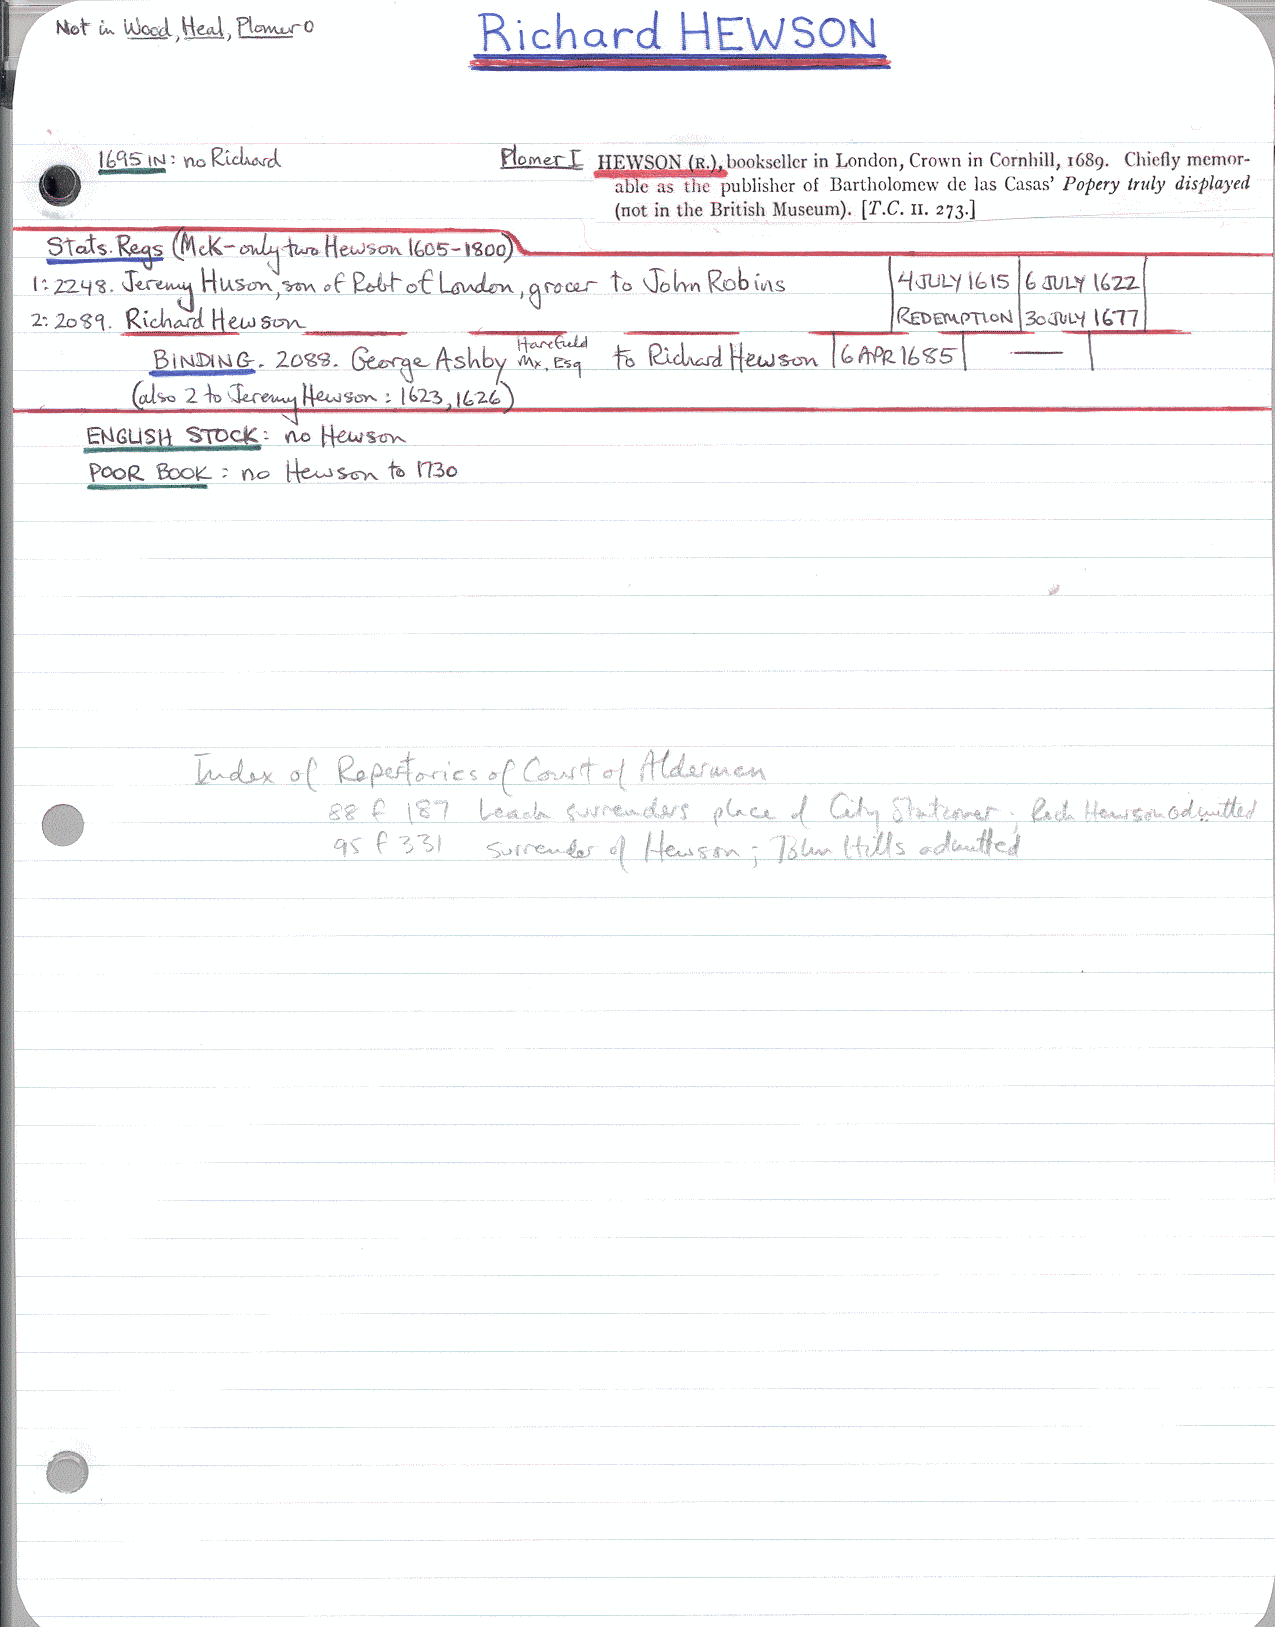 Not in Wood, Heal, Plomer 0
Richard HEWSON
1695 IN: no Richard
Plomer I HEWSON (R.), bookseller in London, Crown in Cornhill, 1689. Chiefly memor-
able as the publisher of Bartholomew de las Casas' Popery truly displayed
(not in the British Museum). [T.C. II. 273.]
Stats. Regs (McK-only two Hewson 1605-1800)
1: 2248. Jeremy Huson, son of Robt of London, grocer to John Robins 4 JULY 1615 6 JULY 1622
2: 2089. Richard Hewson REDEMPTION 30 JULY 1677
BINDING. 2088. George Ashby Harefield Mx, Esq to Richard Hewson 6 APR 1685 —
(also 2 to Jeremy Hewson: 1623, 1626)
ENGLISH STOCK: no Hewson
POOR BOOK: no Hewson to 1730
Index of Repertories of Court of Aldermen
88 f 187 Leach surrenders place of City Stationer; Rich Hewson admitted
95 f 331 surrender of Hewson; John Hills admitted